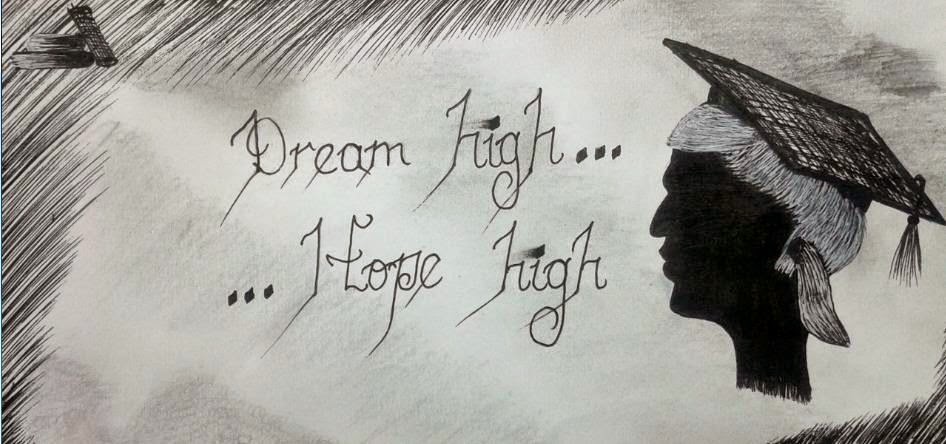 Dream high...
...Hope high